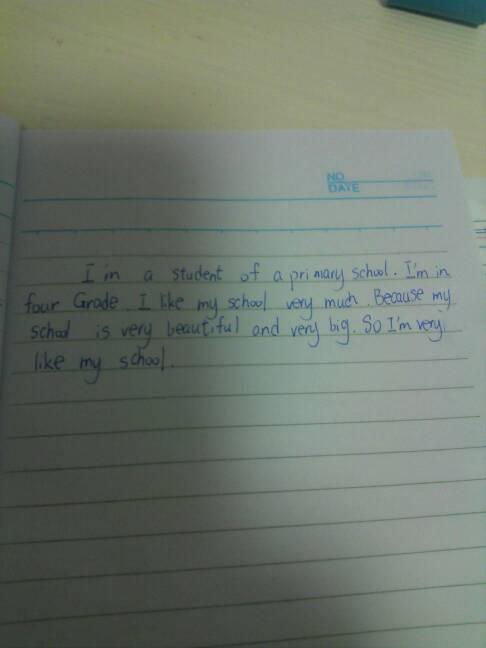 NO.
DATE
I in a student of a primary school. I'm in
four Grade. I like my school very much. Because my
school is very beautiful and very big. So I'm very
like my school.